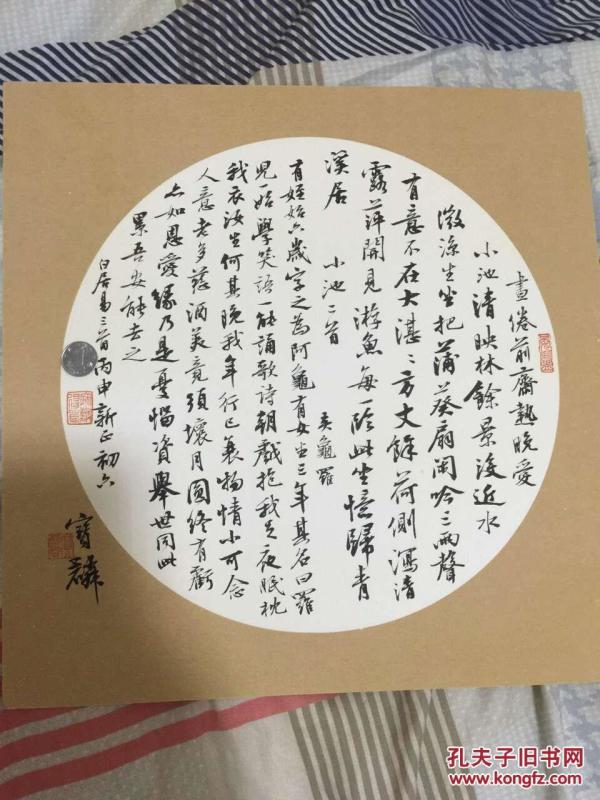 晝倦前齋熱晚愛
小池清映林餘景没近水
微涼生坐把蒲葵扇閑吟三兩聲
有意不在大湛〻方丈餘荷側瀉清
露萍開見游魚每一臨此坐憶歸青
溪居 小池二首 弄龜羅
有姪始六歲字之為阿龜有女生三年其名曰羅
兒一始學笑語一能誦歌詩朝戲抱我足夜眠枕
我衣汝生何其晚我年行已衰物情小可念
人意老多慈酒美竟須壞月圓終有虧
亦如恩愛緣乃是憂惱資舉世同此
累吾安能去之
白居易三首丙申新正初六
寶麟
孔夫子旧书网
www.kongfz.com